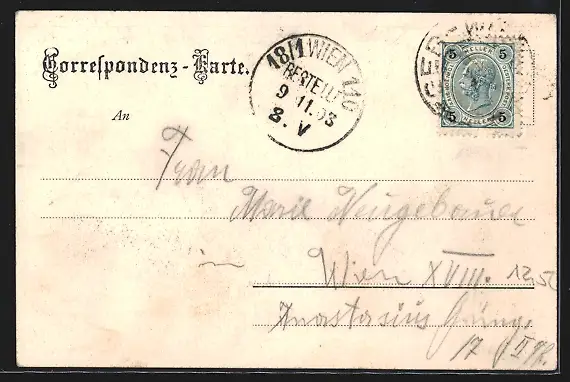 Correspondenz-Karte.
18/1 WIEN 110
BESTELLT
9.11.03
8.V
5 HELLER 5
5 HELLER 5
An
Frau
Marie Neugebauer
in
Wien XVIII.
Anastasius Grüng.
17